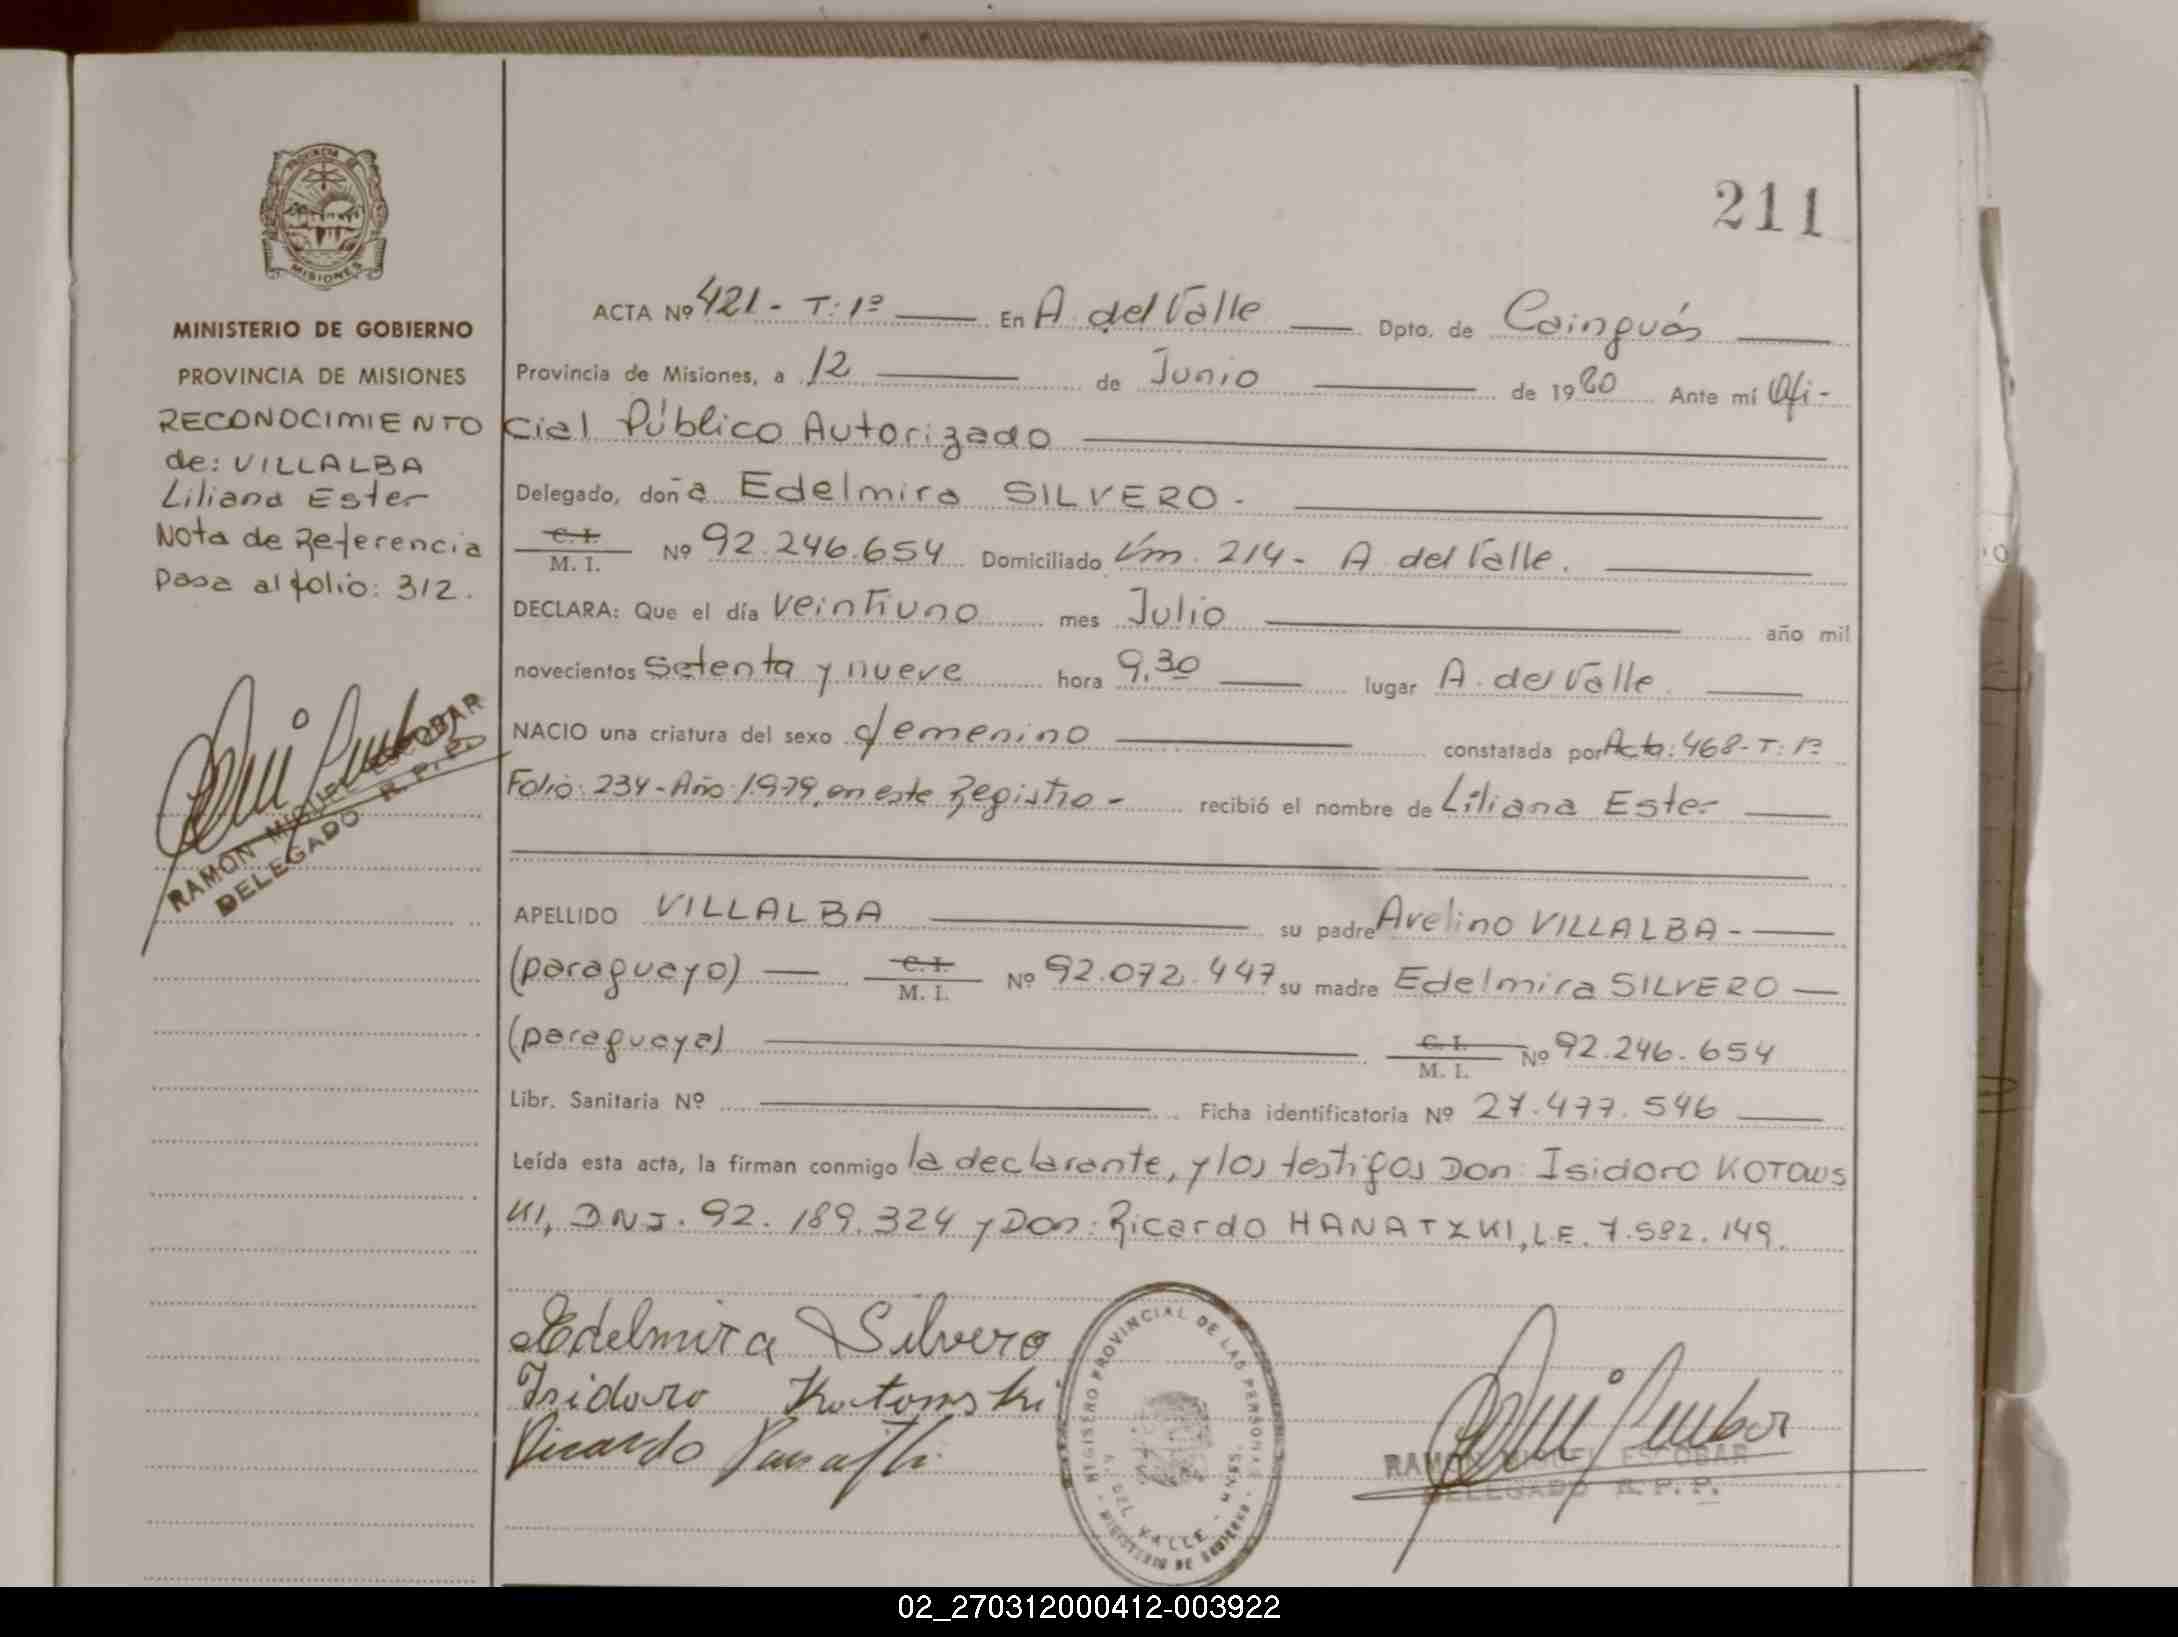 211
PROVINCIA DE
MISIONES
MINISTERIO DE GOBIERNO
PROVINCIA DE MISIONES
RECONOCIMIENTO
de: VILLALBA
Liliana Ester
Nota de Referencia
Pasa al folio: 312.
RAMON MIGUEL ESCOBAR
DELEGADO R. P. P.
ACTA Nº 421 - T: 1º En A. del Valle Dpto. de Cainguás
Provincia de Misiones, a 12 de Junio de 1980 Ante mí Ofi-
cial Público Autorizado
Delegado, doña Edelmira SILVERO -
C. I.
M. I. Nº 92.246.654 Domiciliado Km. 214 - A. del Valle.
DECLARA: Que el día veintiuno mes Julio año mil
novecientos setenta y nueve hora 9,30 lugar A. del Valle
NACIO una criatura del sexo femenino constatada por Acta: 468 - T: 1º
Folio: 234 - Año: 1979, en este Registro - recibió el nombre de Liliana Ester
APELLIDO VILLALBA su padre Avelino VILLALBA -
(paraguayo) C. I.
M. I. Nº 92.072.447 su madre Edelmira SILVERO
(paraguaya) C. I.
M. I. Nº 92.246.654
Libr. Sanitaria Nº Ficha identificatoria Nº 27.477.546
Leída esta acta, la firman conmigo la declarante, y los testigos Don: Isidoro KOTOWS
KI, DNI. 92.189.324 y Don: Ricardo HANATZKI, L.E. 7.582.149.
Edelmira Silvero
Isidoro Kotowski
Ricardo
REGISTRO PROVINCIAL DE LAS PERSONAS
A. DEL VALLE - MNES.
MINISTERIO DE GOBIERNO
RAMON MIGUEL ESCOBAR
DELEGADO R. P. P.
02_270312000412-003922